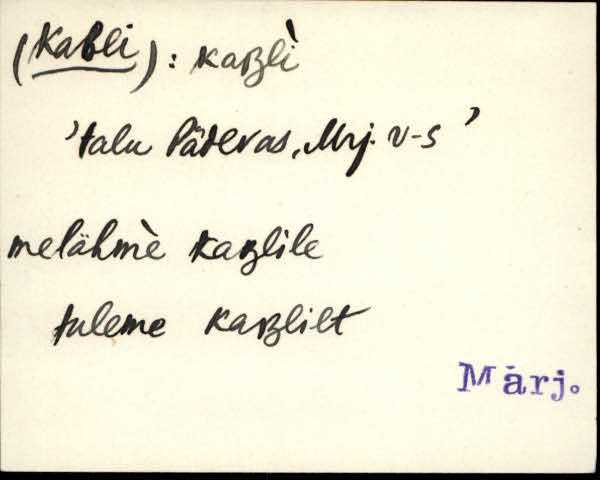 (Kabli): kaʙli`
'talu Päderas, Mrj. v-s'
melähmè kaʙlile
tuleme kaʙlilt
Märj.